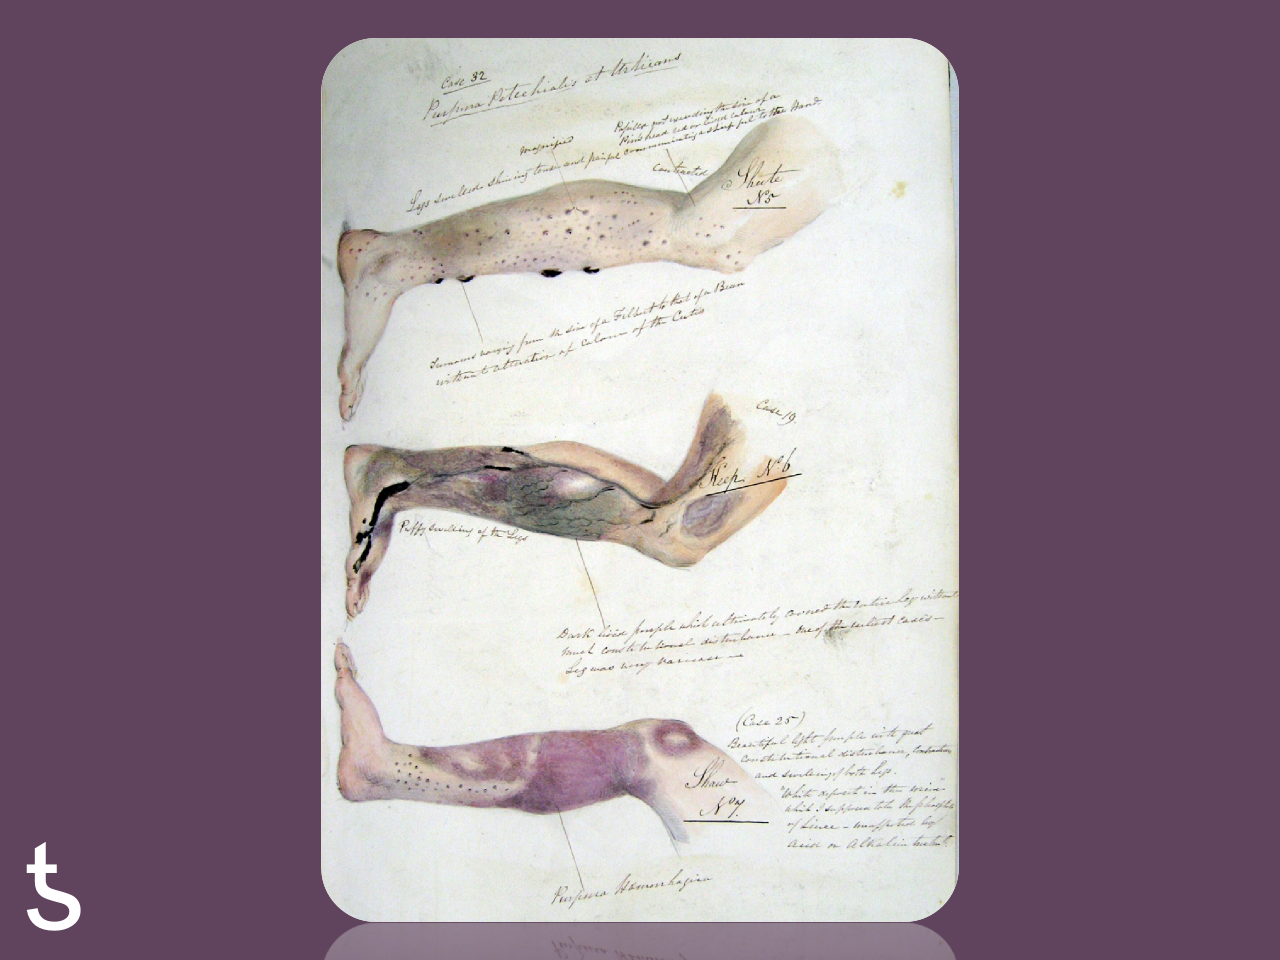 Case 32
Purpura Petechialis et Urticans
magnified
Papilla not exceeding the size of a
Pin's head red or livid colour
Legs swelled shining tense and painful communicating a sharp feel to the Hand
contracted
Shute
No 5
Tumours varying from the size of a Filbert to that of a Bean
without alteration of Colour of the Cutis
Case 19.
No 6
Puffy swelling of the Legs
Dark livid purple which ultimately covered the entire leg without
much constitutional disturbance – One of the earliest cases –
Leg was very varicose –
(Case 25)
Beautiful light purple with great
constitutional disturbance, Contraction
and swelling of both Legs.
"White deposit in the urine"
which I suppose to be the phosphate
of Lime – unaffected by
Acid or Alkaline
Shaw
No 7.
Purpura Hæmorrhagica
ts